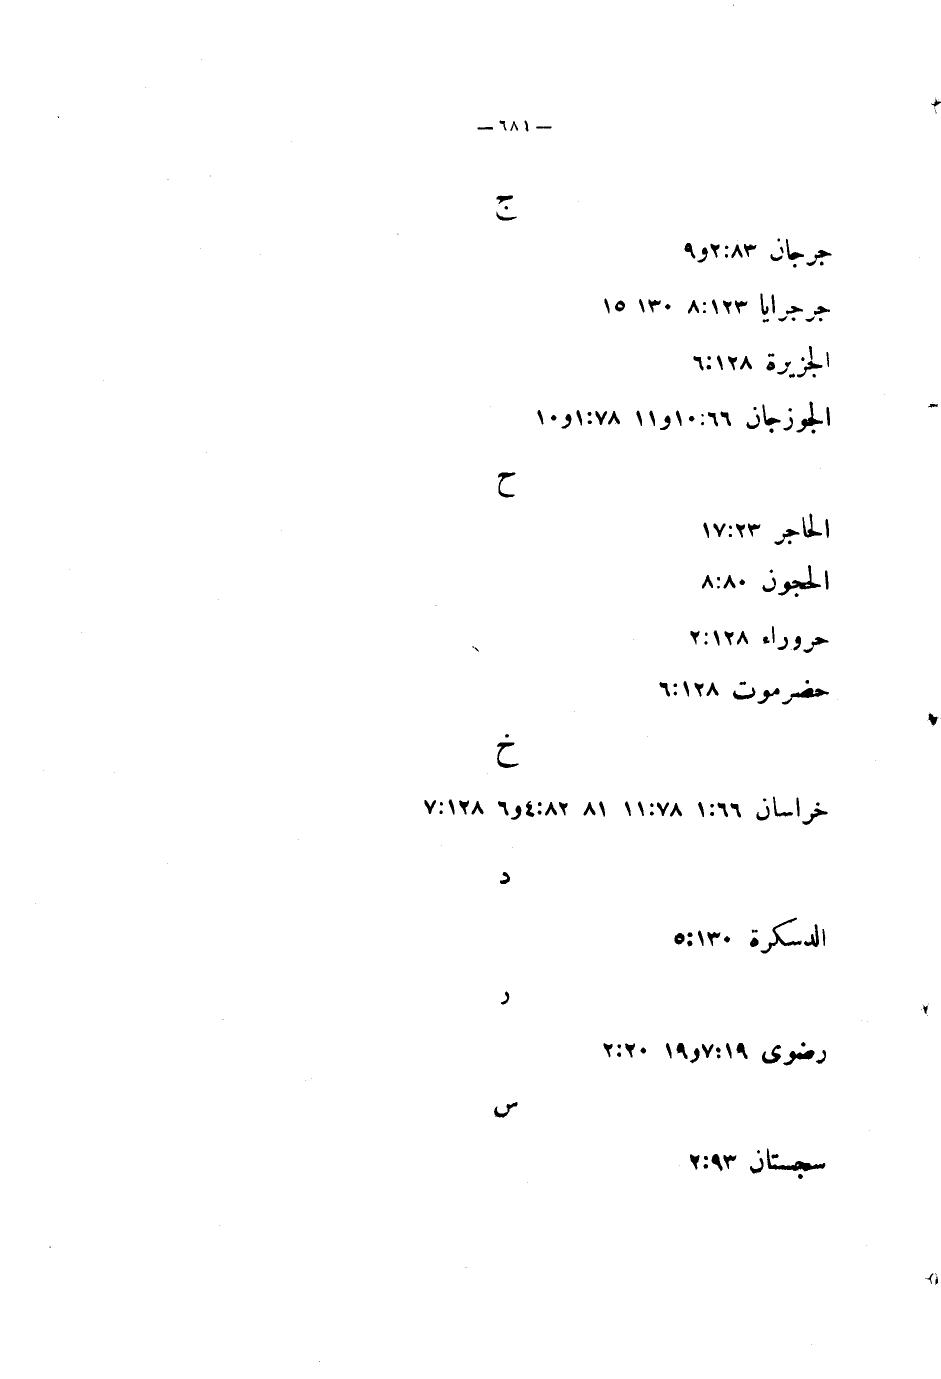 — ٦٨١ —
ج
جرجان ٢:٨٣و٩
جرجرايا ٨:١٢٣ ١٣٠ ١٥
الجزيرة ٦:١٢٨
الجوزجان ١٠:٦٦و١١ ١:٧٨و١٠
ح
الحاجر ١٧:٢٣
الحجون ٨:٨٠
حروراء ٢:١٢٨
حضرموت ٦:١٢٨
خ
خراسان ١:٦٦ ١١:٧٨ ٨١ ٤:٨٢و٦ ٧:١٢٨
د
الدسكرة ٥:١٣٠
ر
رضوى ٧:١٩و١٩ ٢:٢٠
س
سجستان ٢:٩٣